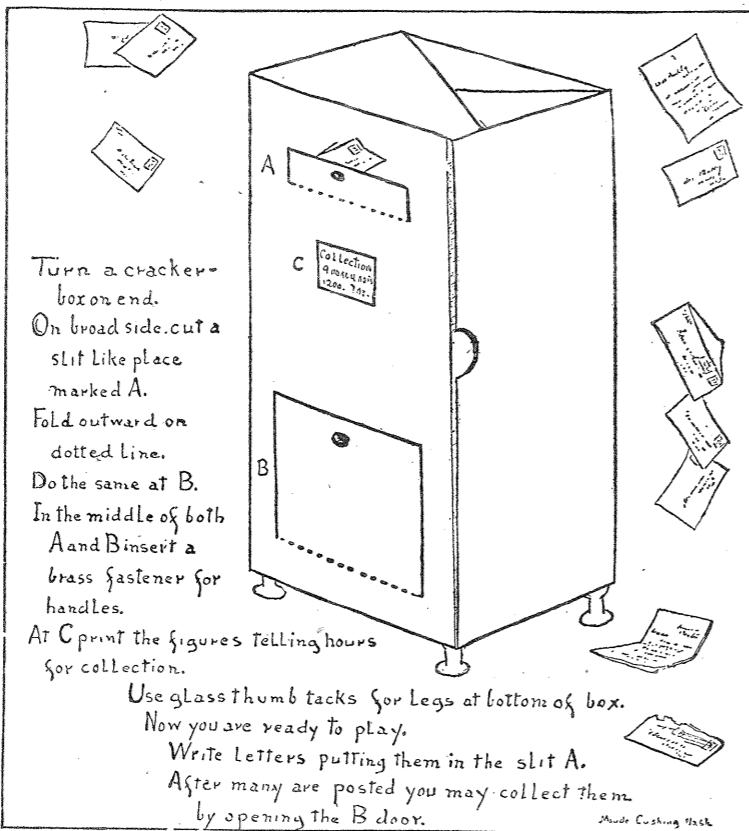 A
C
Collection
B
Turn a cracker-
box on end.
On broad side cut a
slit like place
marked A.
Fold outward on
dotted line.
Do the same at B.
In the middle of both
A and B insert a
brass fastener for
handles.
At C print the figures telling hours
for collection.
Use glass thumb tacks for legs at bottom of box.
Now you are ready to play.
Write letters putting them in the slit A.
After many are posted you may collect them
by opening the B door.
Maude Cushing Nash